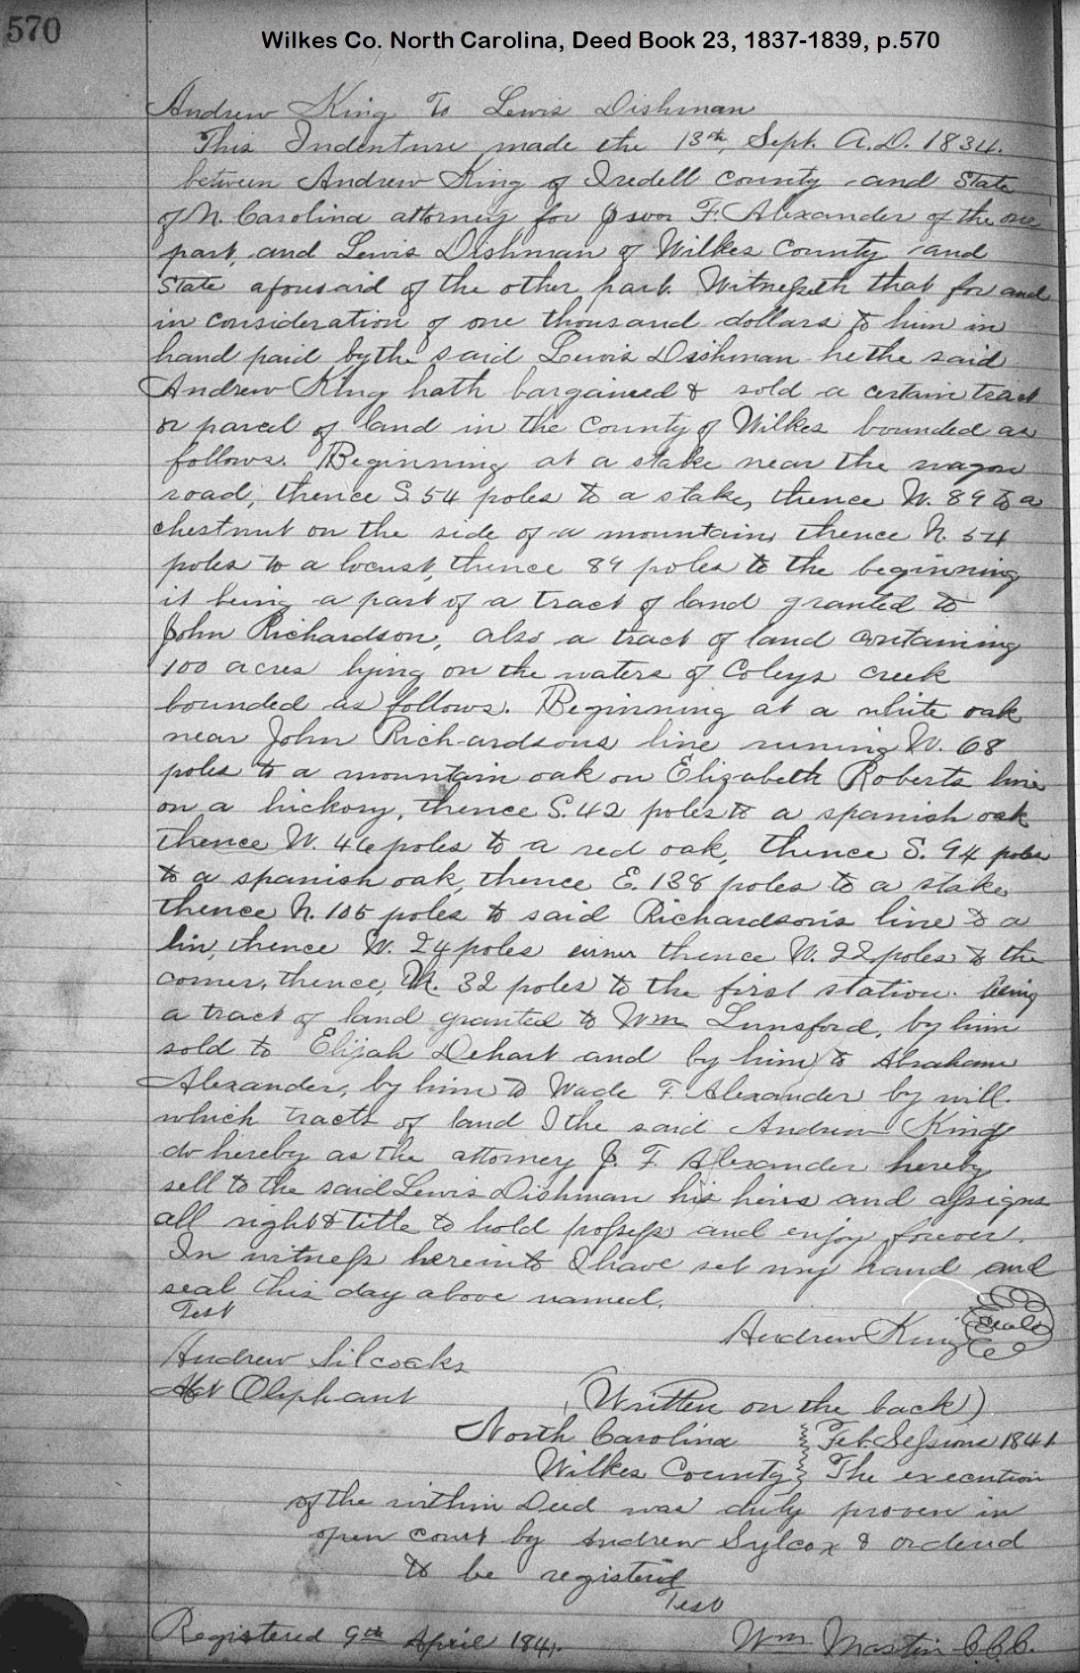 570
Wilkes Co. North Carolina, Deed Book 23, 1837-1839, p.570
Andrew King To Lewis Dishman
This Indenture made the 13th, Sept. A.D. 1834.
between Andrew King of Iredell county and State
of N. Carolina attorney for F. Alexander of the one
part, and Lewis Dishman of Wilkes County and
State aforesaid of the other part. Witnesseth that for and
in consideration of one thousand dollars to him in
hand paid by the said Lewis Dishman he the said
Andrew King hath bargained & sold a certain tract
or parcel of land in the County of Wilkes bounded as
follows. Beginning at a stake near the wagon
road, thence S. 54 poles to a stake, thence W. 89 to a
chestnut on the side of a mountain, thence N. 54
poles to a locust, thence 89 poles to the beginning
it being a part of a tract of land granted to
John Richardson, also a tract of land containing
100 acres lying on the waters of Coleys creek
bounded as follows. Beginning at a white oak
near John Richardsons line runing W. 68
poles to a mountain oak on Elizabeth Roberts line
on a hickory, thence S. 42 poles to a spanish oak
thence W. 46 poles to a red oak, thence S. 94 poles
to a spanish oak, thence E. 138 poles to a stake
thence N. 105 poles to said Richardson's line to a
lin, thence W. 24 poles thence W. 22 poles to the
corner, thence N. 32 poles to the first station. being
a tract of land granted to Wm Lunsford, by him
sold to Elijah Dehart and by him to Abraham
Alexander, by him to Wade F. Alexander by will.
which tracts of land I the said Andrew King
do hereby as the attorney J. F. Alexander hereby
sell to the said Lewis Dishman his heirs and assigns
all right & title to hold possess and enjoy forever.
In witness hereinto I have set my hand and
seal this day above named.
Test
Andrew King Seal
Andrew Silcocks
Oliphant
(Written on the back)
North Carolina } Feb. Sessions 1841
Wilkes County } The execution
of the within Deed was duly proven in
open court by Andrew Sylcox & ordend
to be registerd
Test
Registered 9th April 1841.
Wm. Mastin C.C.C.